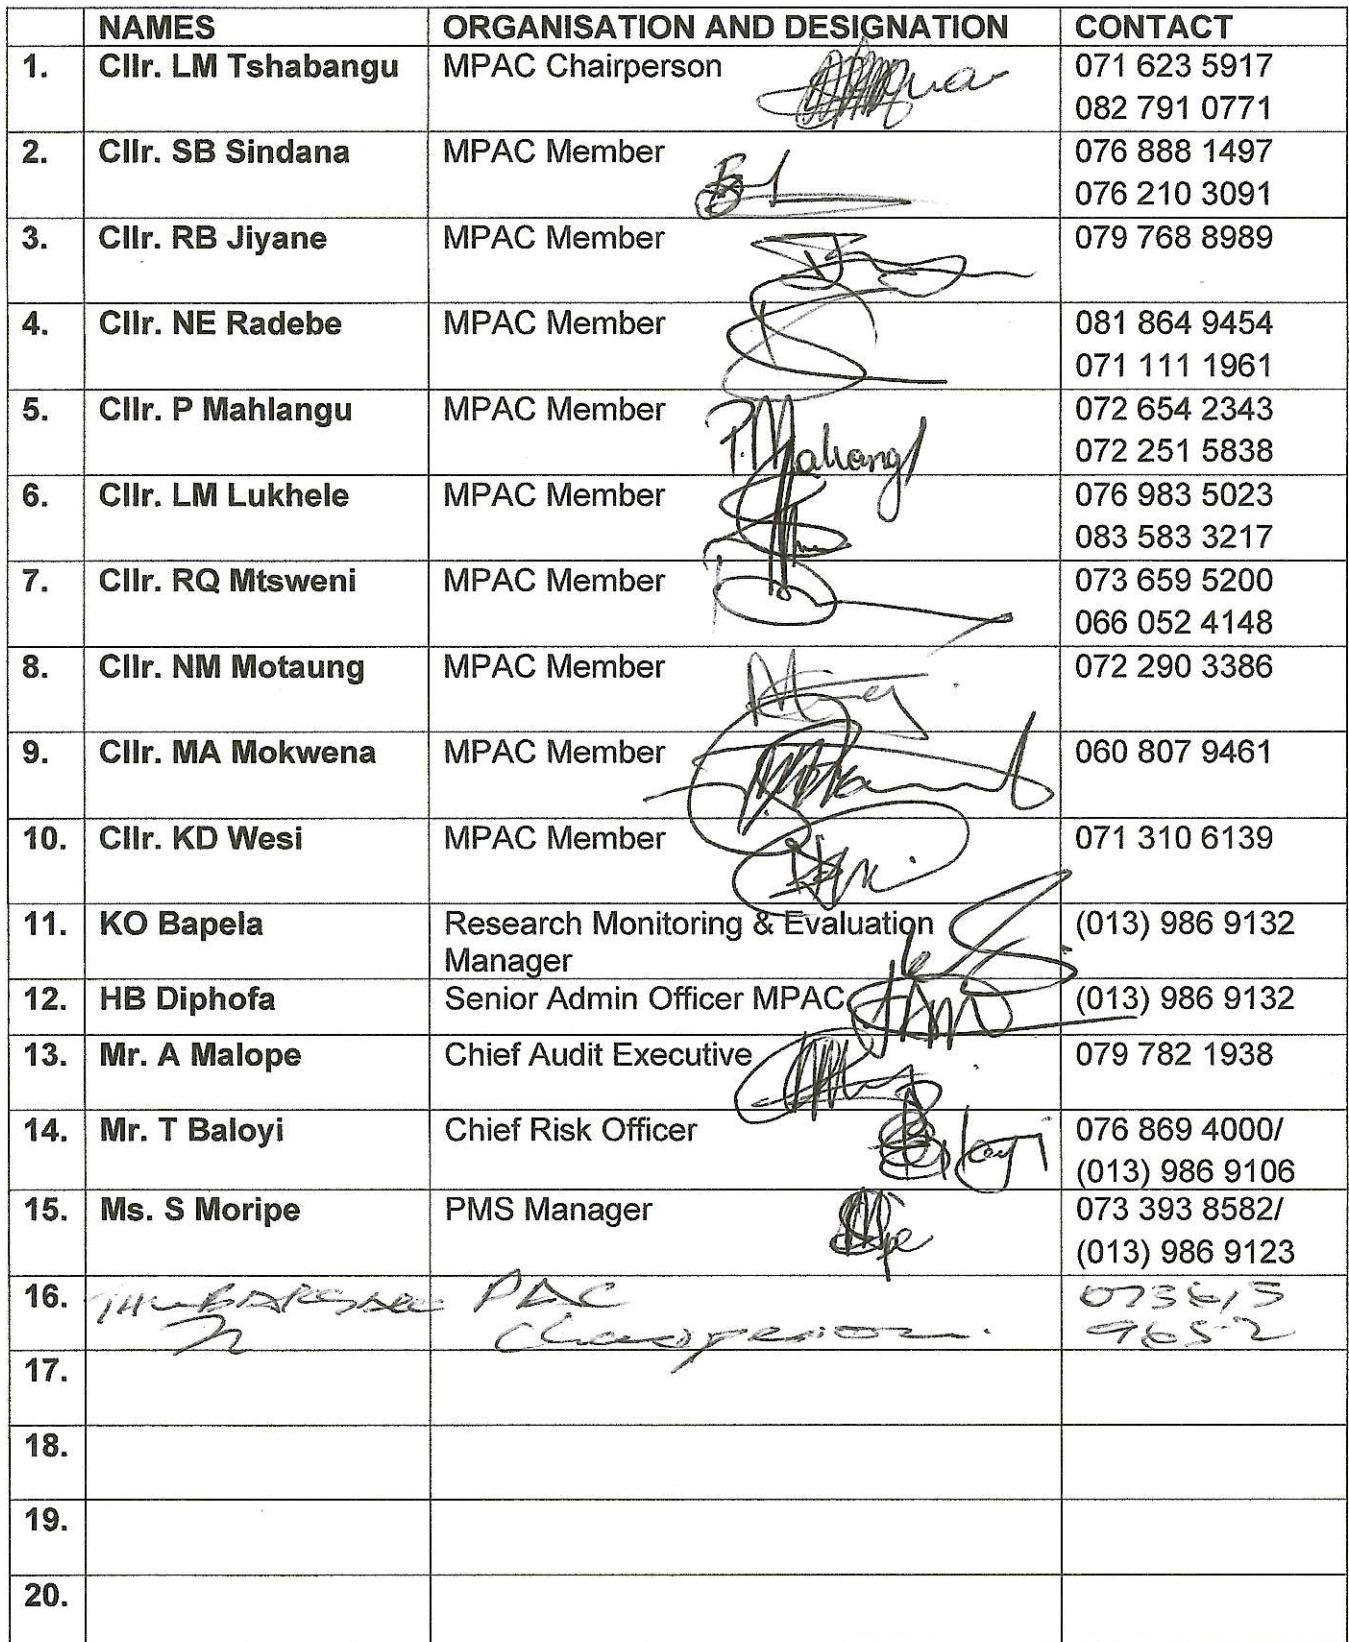 NAMES ORGANISATION AND DESIGNATION CONTACT
1. Cllr. LM Tshabangu MPAC Chairperson 071 623 5917
082 791 0771
2. Cllr. SB Sindana MPAC Member 076 888 1497
076 210 3091
3. Cllr. RB Jiyane MPAC Member 079 768 8989
4. Cllr. NE Radebe MPAC Member 081 864 9454
071 111 1961
5. Cllr. P Mahlangu MPAC Member 072 654 2343
072 251 5838
6. Cllr. LM Lukhele MPAC Member 076 983 5023
083 583 3217
7. Cllr. RQ Mtsweni MPAC Member 073 659 5200
066 052 4148
8. Cllr. NM Motaung MPAC Member 072 290 3386
9. Cllr. MA Mokwena MPAC Member 060 807 9461
10. Cllr. KD Wesi MPAC Member 071 310 6139
11. KO Bapela Research Monitoring & Evaluation (013) 986 9132
Manager
12. HB Diphofa Senior Admin Officer MPAC (013) 986 9132
13. Mr. A Malope Chief Audit Executive 079 782 1938
14. Mr. T Baloyi Chief Risk Officer 076 869 4000/
(013) 986 9106
15. Ms. S Moripe PMS Manager 073 393 8582/
(013) 986 9123
16. PAC 073615
Chairperson. 9652
17.
18.
19.
20.